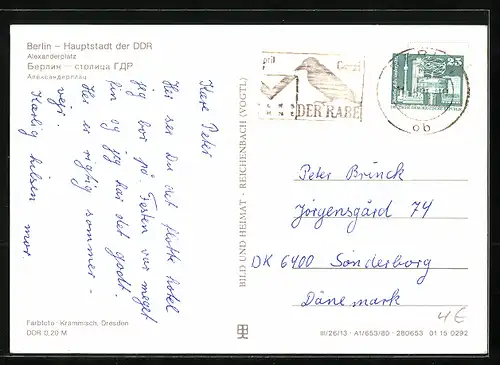 Berlin – Hauptstadt der DDR
Alexanderplatz
Берлин — столица ГДР
Александерплац
Kære Peter
Her ser Du det flotte hotel
jeg bor på. Festen var meget
fin og jeg har det godt.
Her er rigtig sommer-
vejr.
Kærlig hilsen
mor.
Farbfoto · Krammisch, Dresden
DDR 0,20 M
BILD UND HEIMAT · REICHENBACH (VOGTL)
DER RABE
25
ob
Peter Brinck
Jörgensgård 74
DK 6400 Sönderborg
Dänemark
4€
III/26/13 · A1/653/80 · 280653 01 15 0292